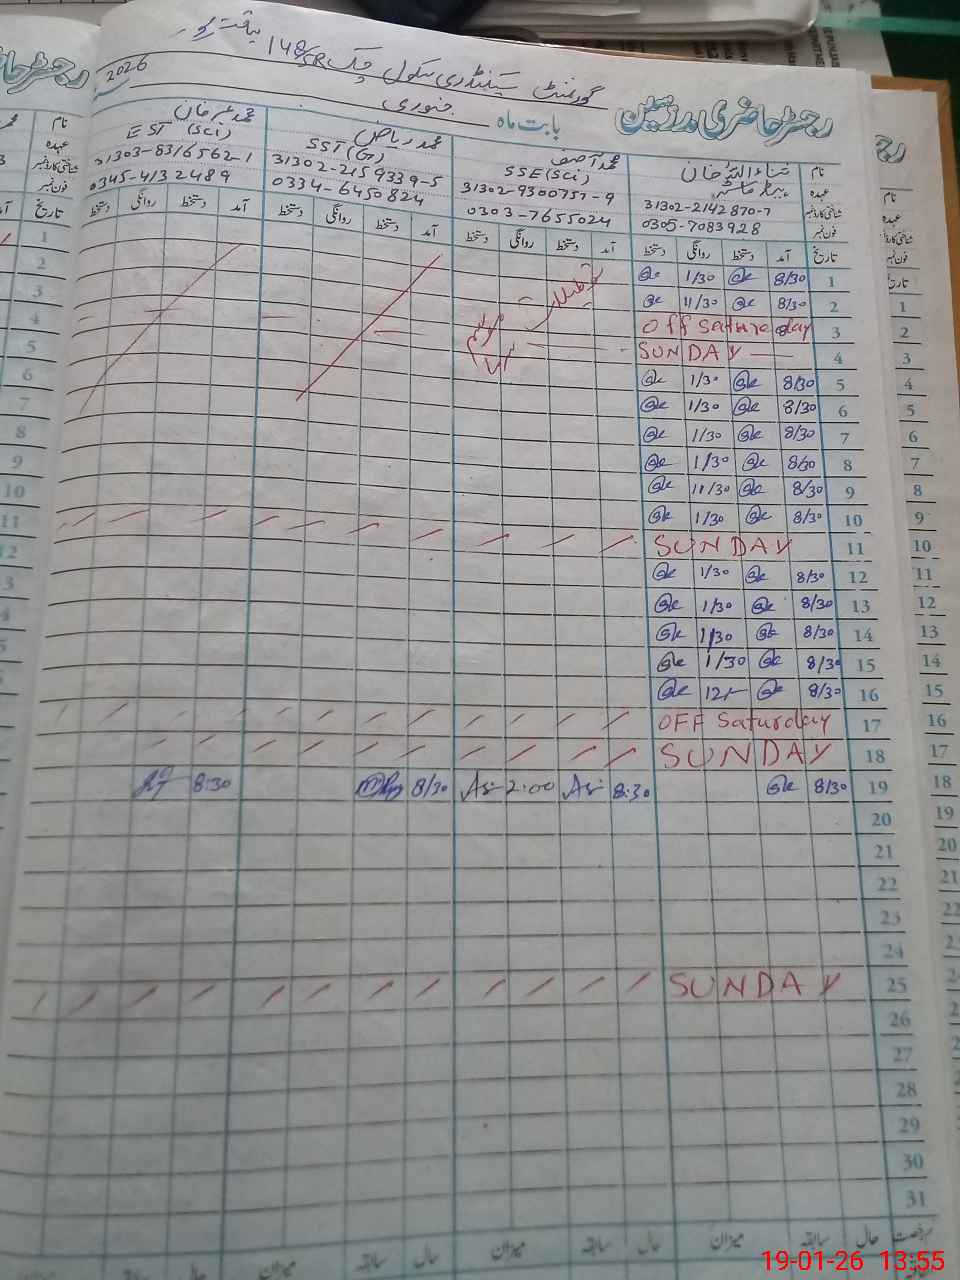 گورنمنٹ سیکنڈری سکول چک 148/SR
2026
رجسٹر حاضری مدرسین
بابت ماہ جنوری
نام ثناء اللہ خان
محمد آصف
محمد ریاض
محمد عمر خان
عہدہ ہیڈ ماسٹر
SSE(Sci)
SST(G)
EST (Sci)
شناختی کارڈ نمبر 31302-2142870-7
31302-9300757-9
31302-2159339-5
31303-8316562-1
فون نمبر 0305-7083928
0303-7655024
0334-6450824
0345-4132489
تاریخ آمد دستخط روانگی دستخط آمد دستخط روانگی دستخط آمد دستخط روانگی دستخط آمد دستخط روانگی دستخط
1 8/30 1/30
2 8/30 11/30
3 Off Saturday
4 SUNDAY
5 8/30 1/30
6 8/30 1/30
7 8/30 1/30
8 8/30 1/30
9 8/30 11/30
10 8/30 1/30
11 SUNDAY
12 8/30 1/30
13 8/30 1/30
14 8/30 1/30
15 8/30 1/30
16 8/30 12/-
17 OFF Saturday
18 SUNDAY
19 8/30 8:30 2:00 8/30 8:30
20
21
22
23
24
25 SUNDAY
26
27
28
29
30
31
رخصت حال سابقہ میزان حال سابقہ میزان حال سابقہ میزان
19-01-26 13:55